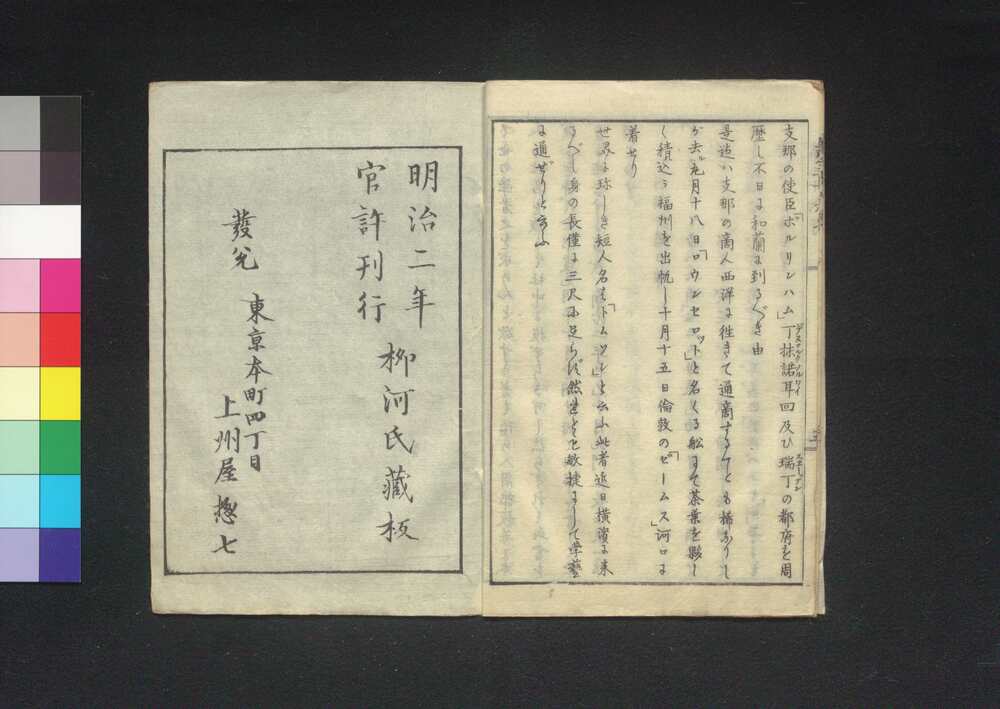 支那の使臣「ボルリンハム」丁抹諾耳回及ひ瑞丁の都府を周
歴し不日に和蘭に到るべき由
是迄ハ支那の商人西洋に往きて通商すること稀なりし
が去ル九月十八日「ロウンセロット」と名くる舩にて茶葉を夥し
く積込ミ福州を出帆し十月十五日倫敦の「ゼームス」河口に
着せり
世界に珍しき短人名を「トムツレ」と云ふ此者近日横濱に来
るべし身の長僅に三尺に足らず然れども敏捷にして学藝
に通ぜりと云ふ
明治二年
官許刊行
柳河氏藏板
發兌
東京本町四丁目
上州屋惣七